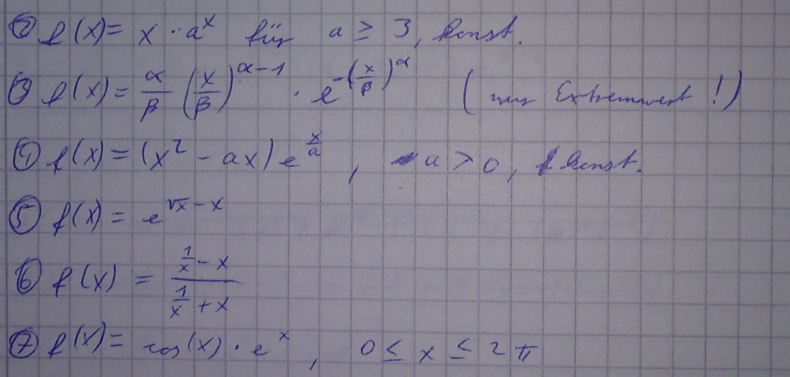 ② f(x) = x · a^x für a ≥ 3, konst.
③ f(x) = α/β (x/β)^(α-1) · e^(-(x/β)^α) (nur Extremwert!)
④ f(x) = (x² - ax) e^(x/a), a > 0, konst.
⑤ f(x) = e^(√x - x)
⑥ f(x) = (1/x - x)/(1/x + x)
⑦ f(x) = cos(x) · e^x, 0 ≤ x ≤ 2π